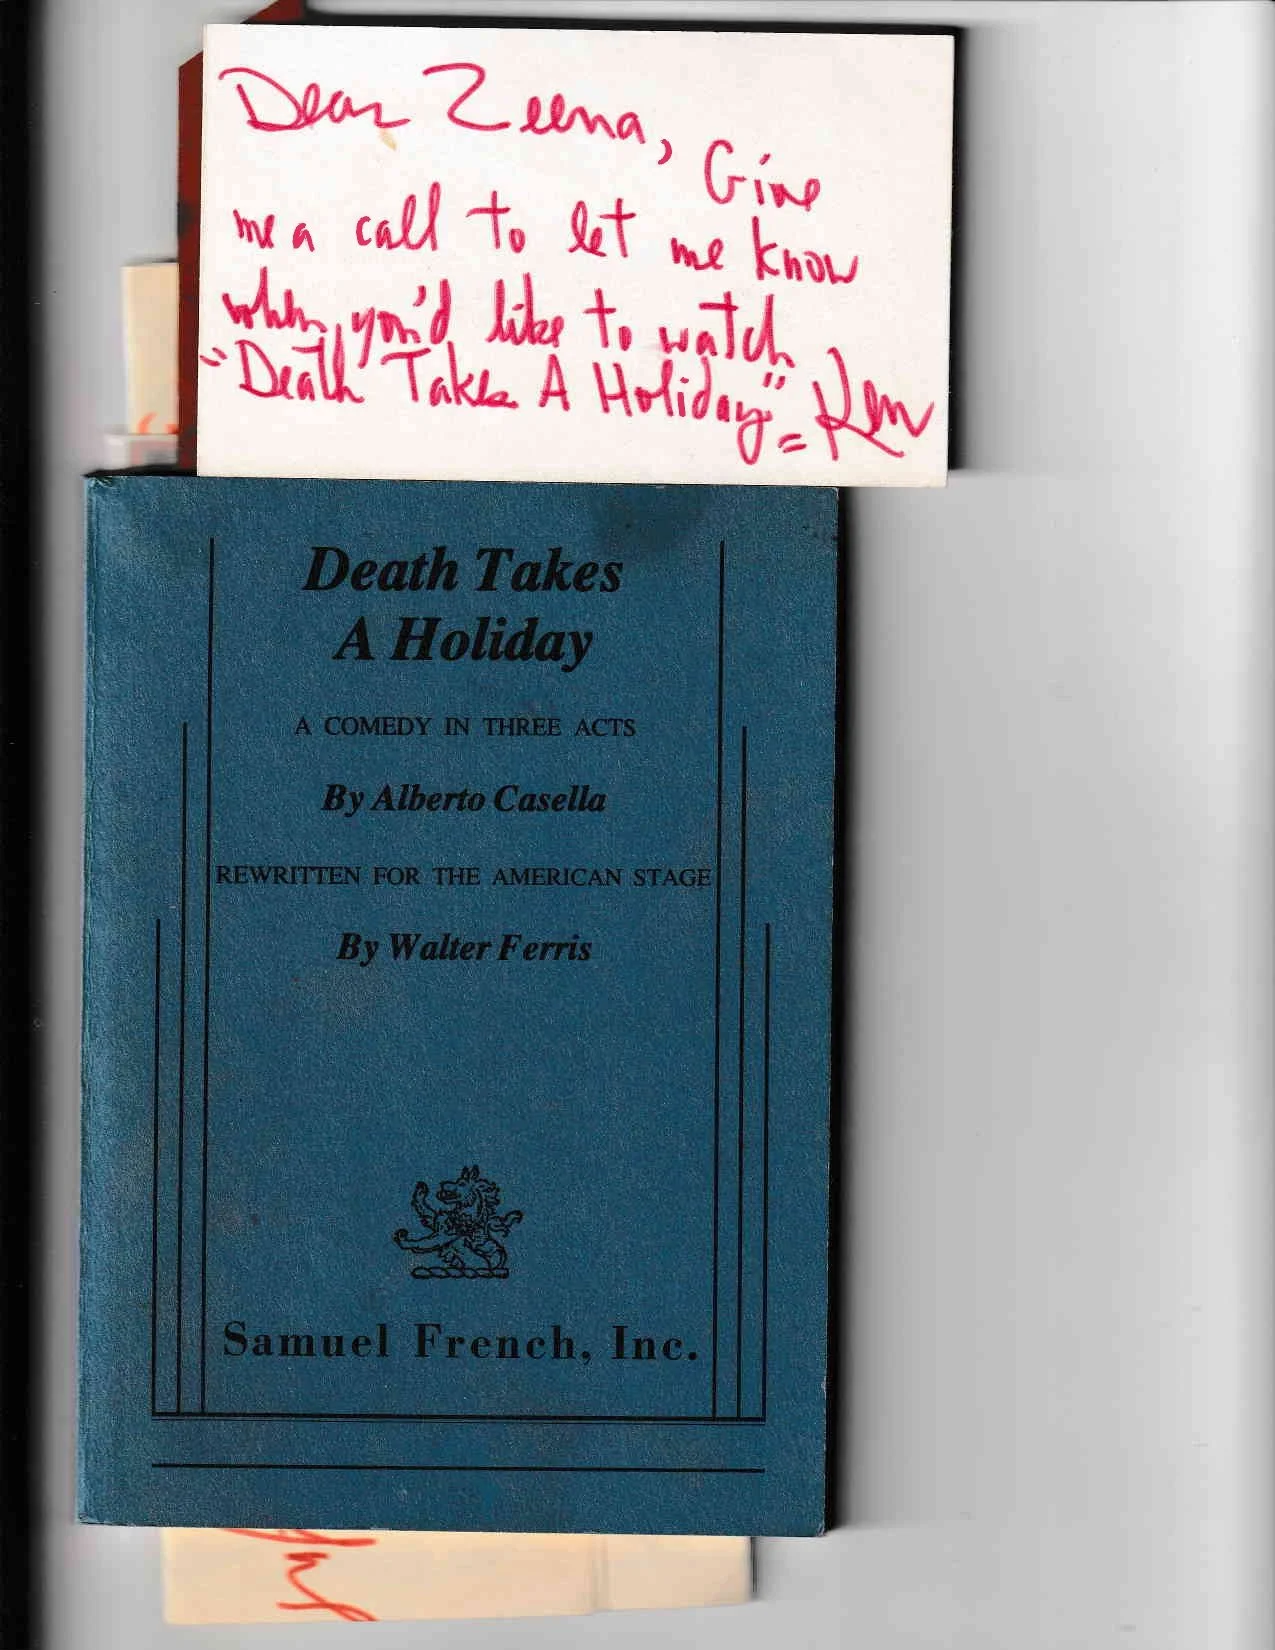 Dear Zeena, Give
me a call to let me know
when you'd like to watch
"Death Takes A Holiday" = Ken
Death Takes
A Holiday
A COMEDY IN THREE ACTS
By Alberto Casella
REWRITTEN FOR THE AMERICAN STAGE
By Walter Ferris
Samuel French, Inc.